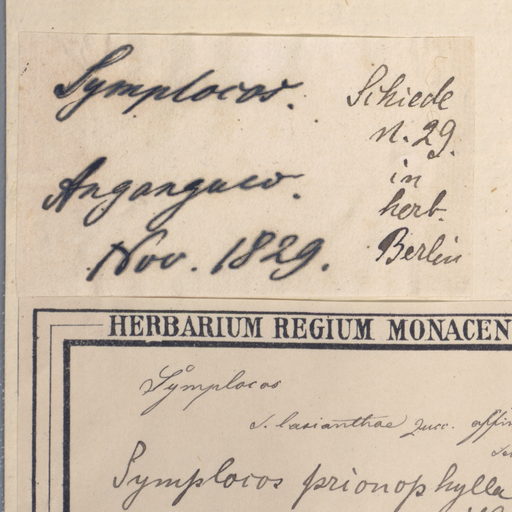 Symplocos.
Angangueo.
Nov. 1829.
Schiede
n. 29.
in
herb.
Berlin
HERBARIUM REGIUM MONACEN
Symplocos
S. lasianthae Zucc. affin
Symplocos prionophylla